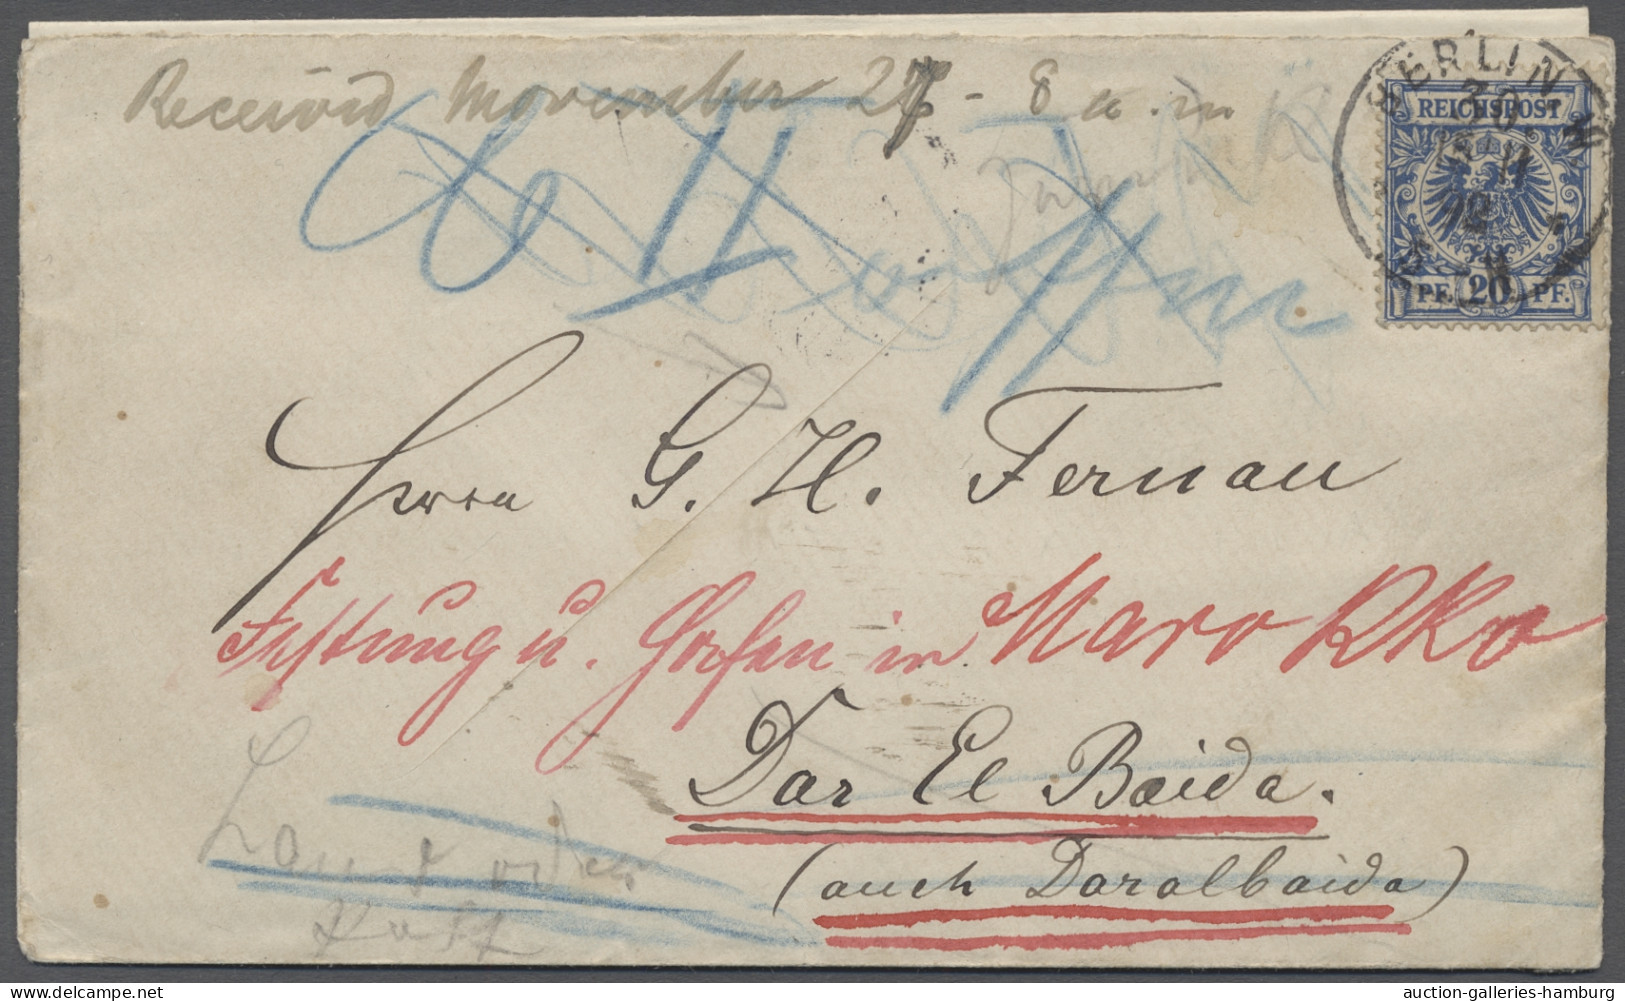 Received November 27 - 8 a. m
BERLIN W
REICHSPOST
PF. 20 PF.
Herrn G. H. Fernau
Festung u. Hafen in Marokko
Dar El Baida.
(auch Daralbaida)
Land oder
Post
www.delcampe.net
auction-galleries-hamburg